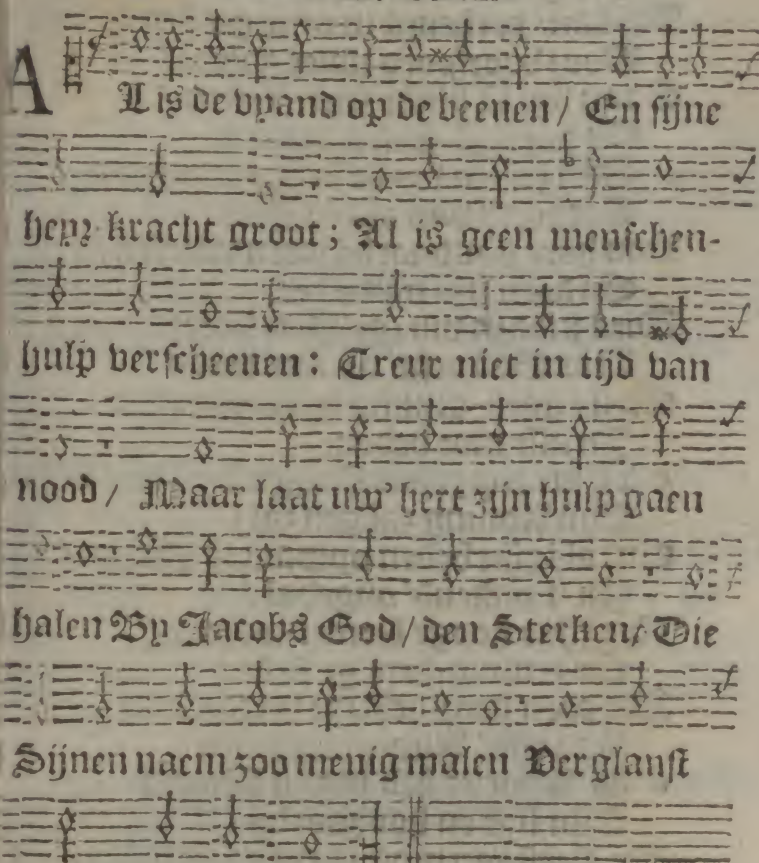 AL is de vyand op de beenen / En sijne
heyr-kracht groot; Al is geen menschen-
hulp verscheenen: Treur niet in tijd van
nood / Maar laat uw' hert zijn hulp gaen
halen By Jacobs God / den Sterken, Die
Sijnen naem zoo menig malen Verglanst